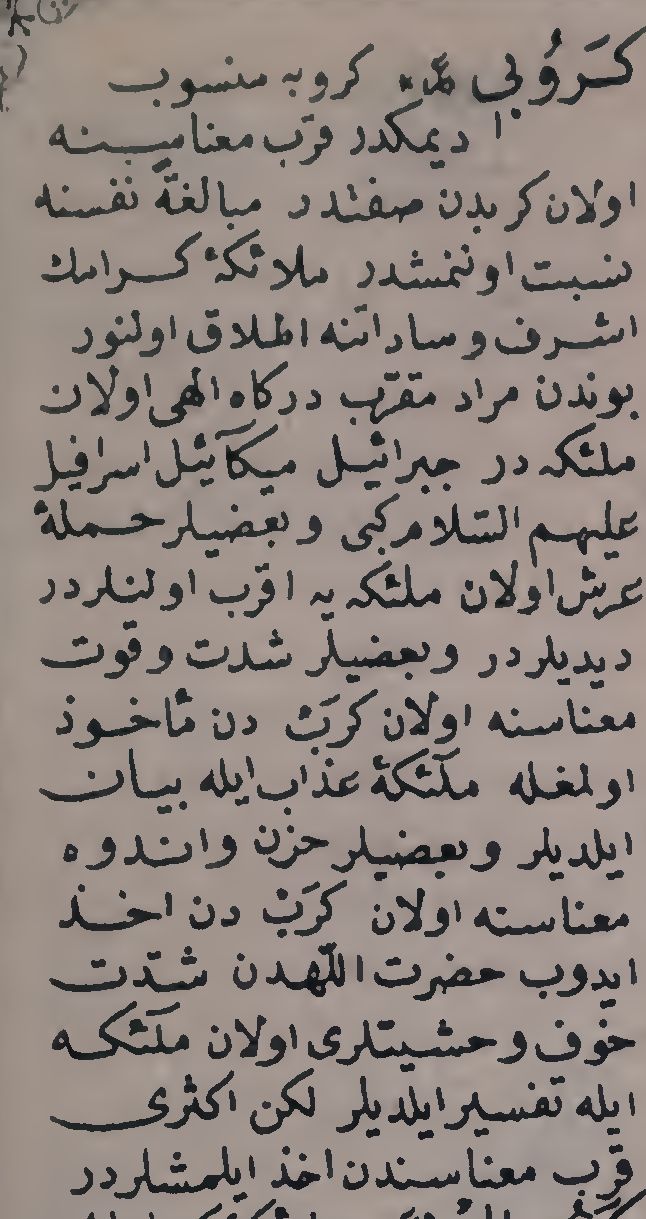 كَرُوبى كروبه منسوب
ديمكدر قرب معناسنه
اولان كربدن صفتدر مبالغةً نفسنه
نسبت اولنمشدر ملائكۀ كرامك
اشرف وساداتنه اطلاق اولنور
بوندن مراد مقرّب دركاه الهى اولان
ملئكه در جبرائيل ميكآئيل اسرافيل
عليهم السّلام كبى وبعضيلر حملۀ
عرش اولان ملئكه يه اقرب اولنلردر
ديديلر در وبعضيلر شدت وقوت
معناسنه اولان كَرَبْ دن مأخوذ
اولمغله ملٓئكۀ عذاب ايله بيان
ايلديلر وبعضيلر حزن واندوه
معناسنه اولان كَرَبْ دن اخذ
ايدوب حضرت اللّهدن شدّت
خوف وخشيتلرى اولان ملٓئكه
ايله تفسير ايلديلر لكن اكثرى
قرب معناسندن اخذ ايلمشلردر